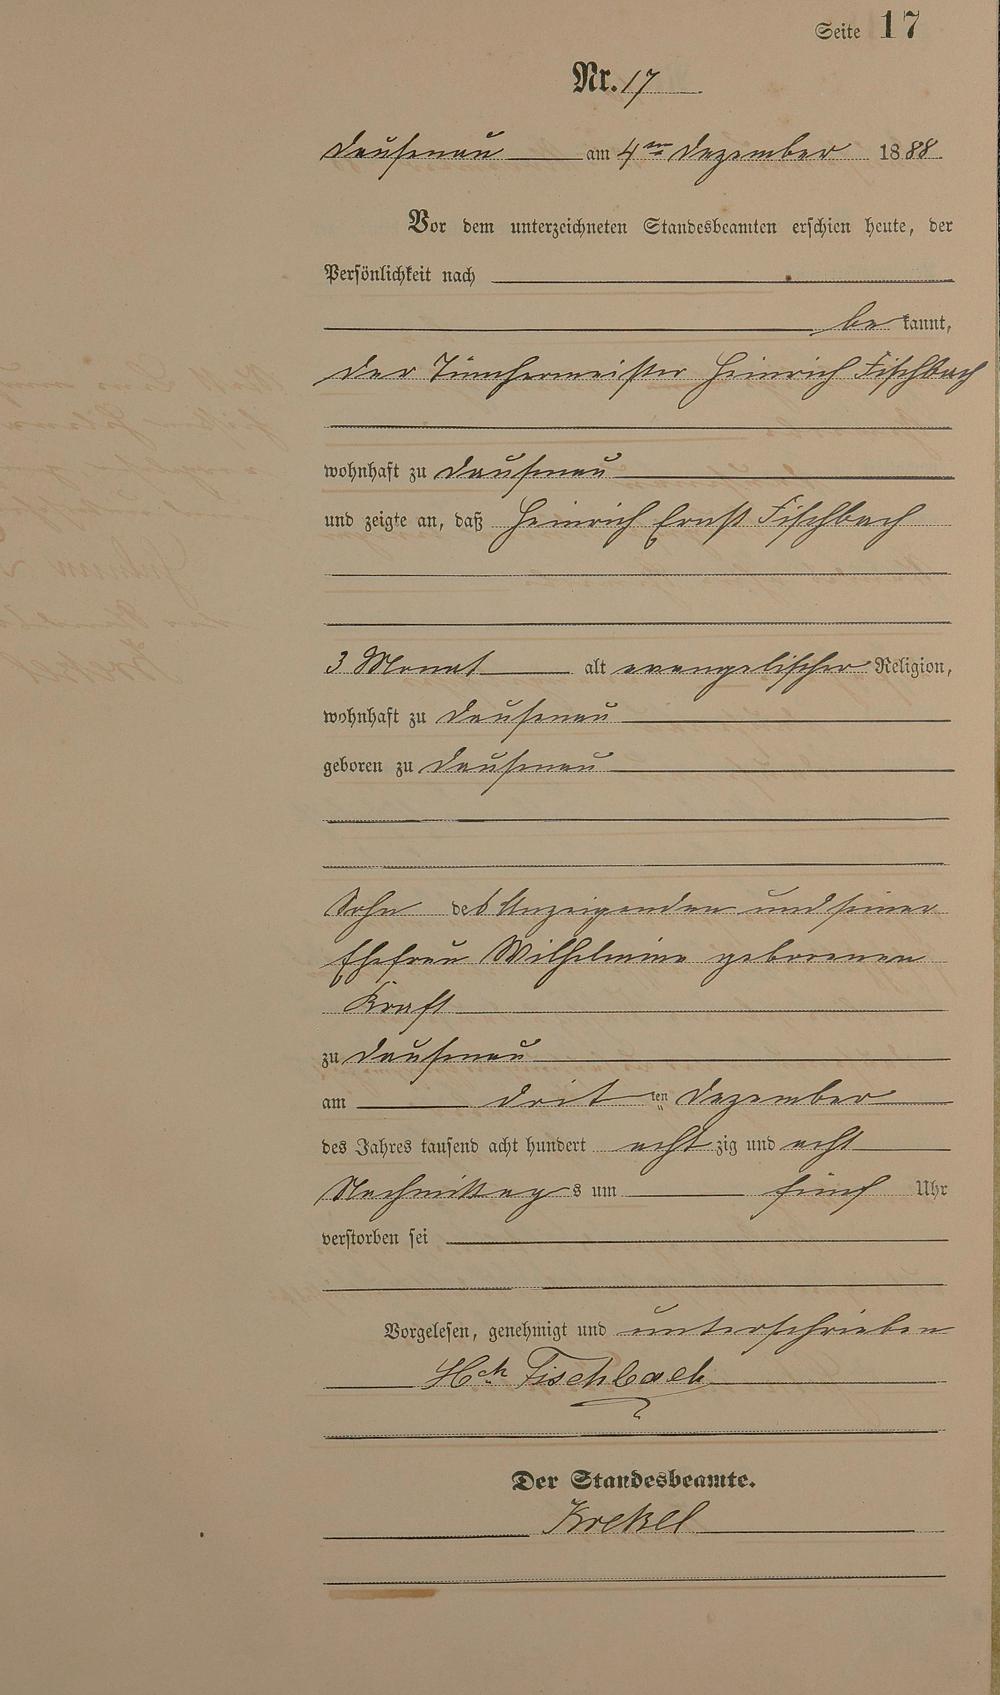 Seite 17
Nr. 17
Dausenau am 4ten Dezember 1888
Vor dem unterzeichneten Standesbeamten erschien heute, der
Persönlichkeit nach
bekannt,
der Tünchermeister Heinrich Fischbach
wohnhaft zu Dausenau
und zeigte an, daß Heinrich Ernst Fischbach
3 Monat alt evangelischer Religion,
wohnhaft zu Dausenau
geboren zu Dausenau
Sohn des Anzeigenden und seiner
Ehefrau Wilhelmine geborenen
Kraft
zu Dausenau
am dritten Dezember
des Jahres tausend acht hundert achtzig und acht
Nachmittags um fünf Uhr
verstorben sei
Vorgelesen, genehmigt und unterschrieben
Hch Fischbach
Der Standesbeamte.
Krekel